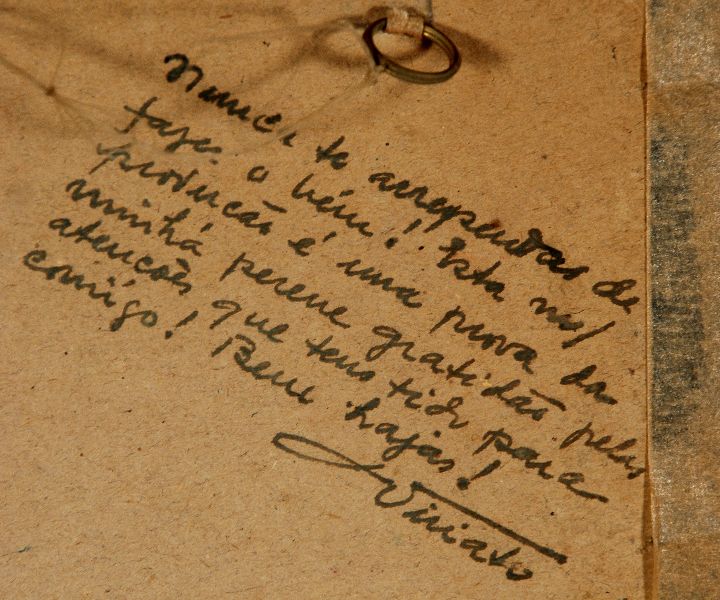 Nunca te arrependas de
fazer o bem! Esta re/
producão é uma prova da
minhá perene gratidão pelas
atencões que tens tido para
comigo! Bem hajas!
Viriato